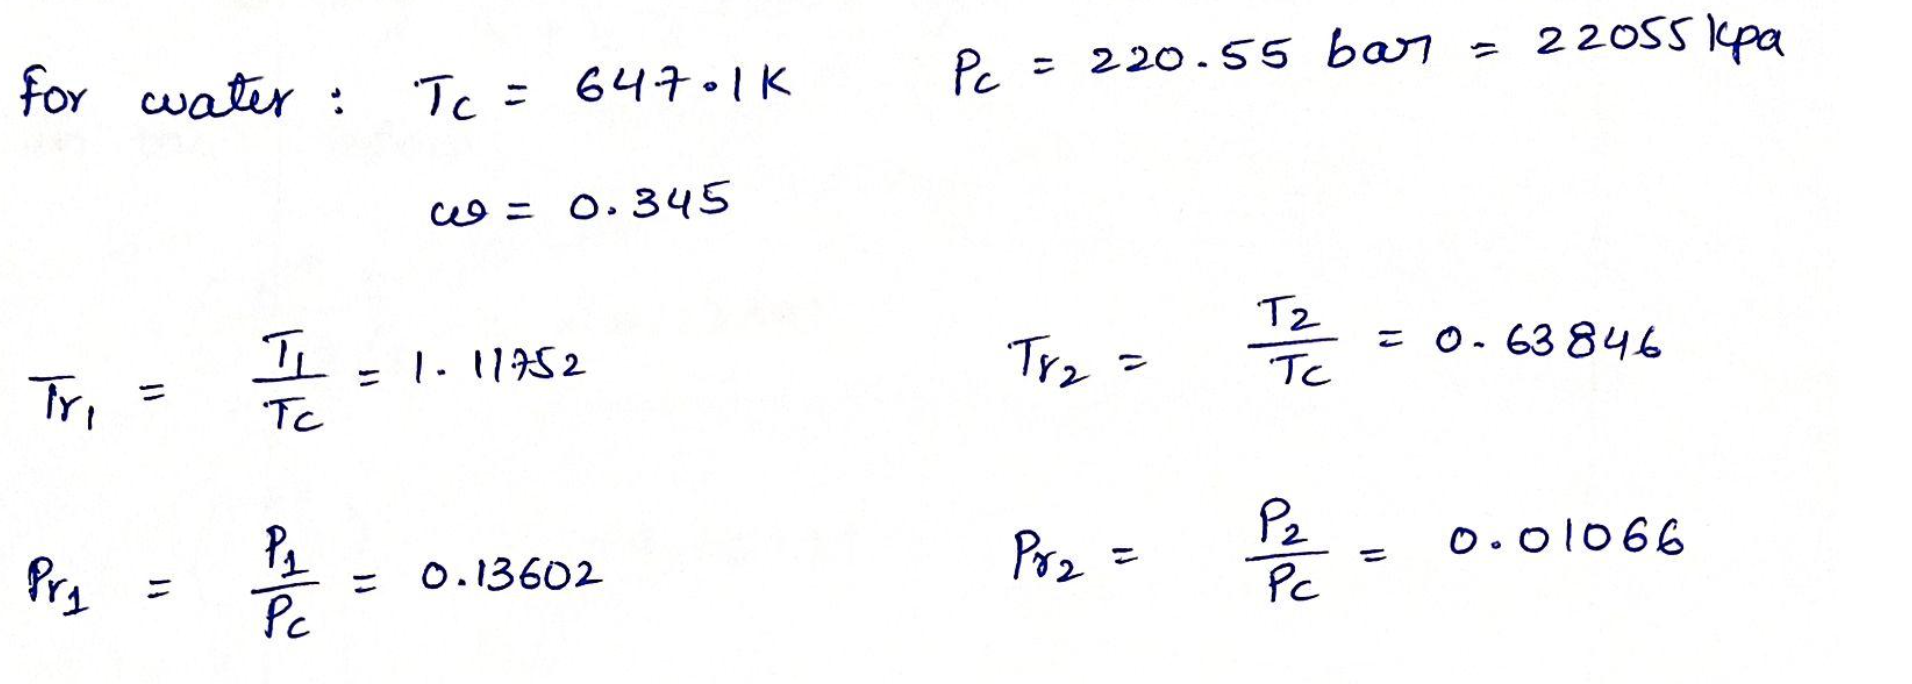 for water : Tc = 647.1K Pc = 220.55 bar = 22055 kpa
ω = 0.345
Tr1 = T1/Tc = 1.11752 Tr2 = T2/Tc = 0.63846
Pr1 = P1/Pc = 0.13602 Pr2 = P2/Pc = 0.01066